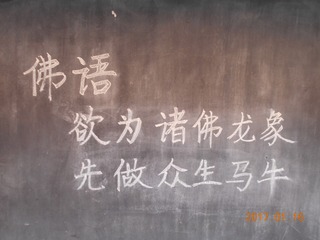 佛语
欲为诸佛龙象
先做众生马牛